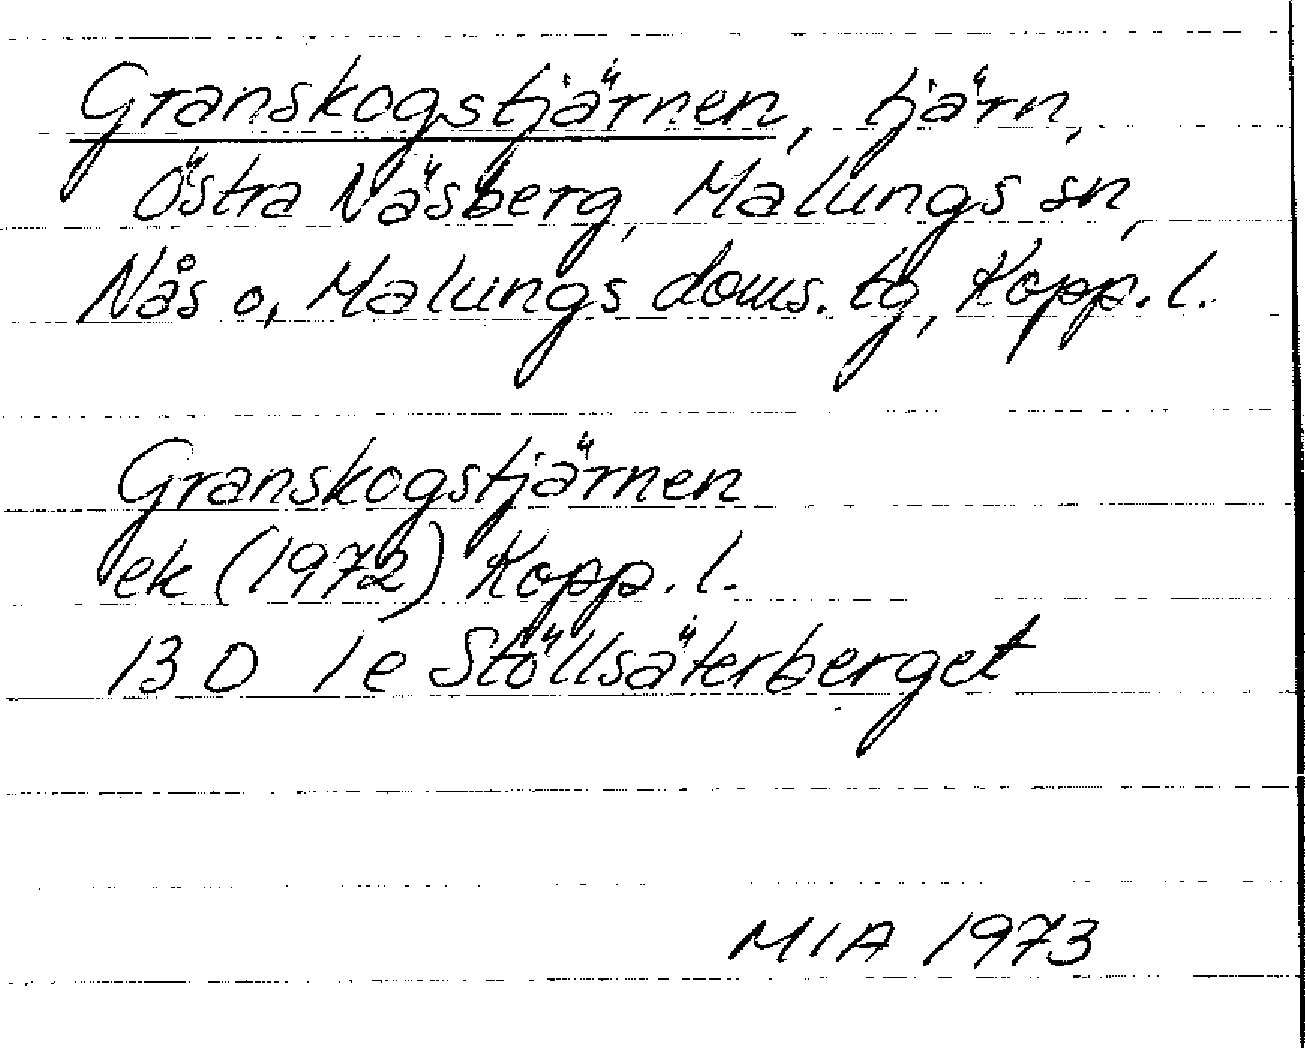 Granskogstjärnen, tjärn,
Östra Näsberg, Malungs sn,
Nås o, Malungs doms. tg, Kopp. l.
Granskogstjärnen
ek (1972) Kopp. l.
13 D 1e Stöllsäterberget
MIA 1973